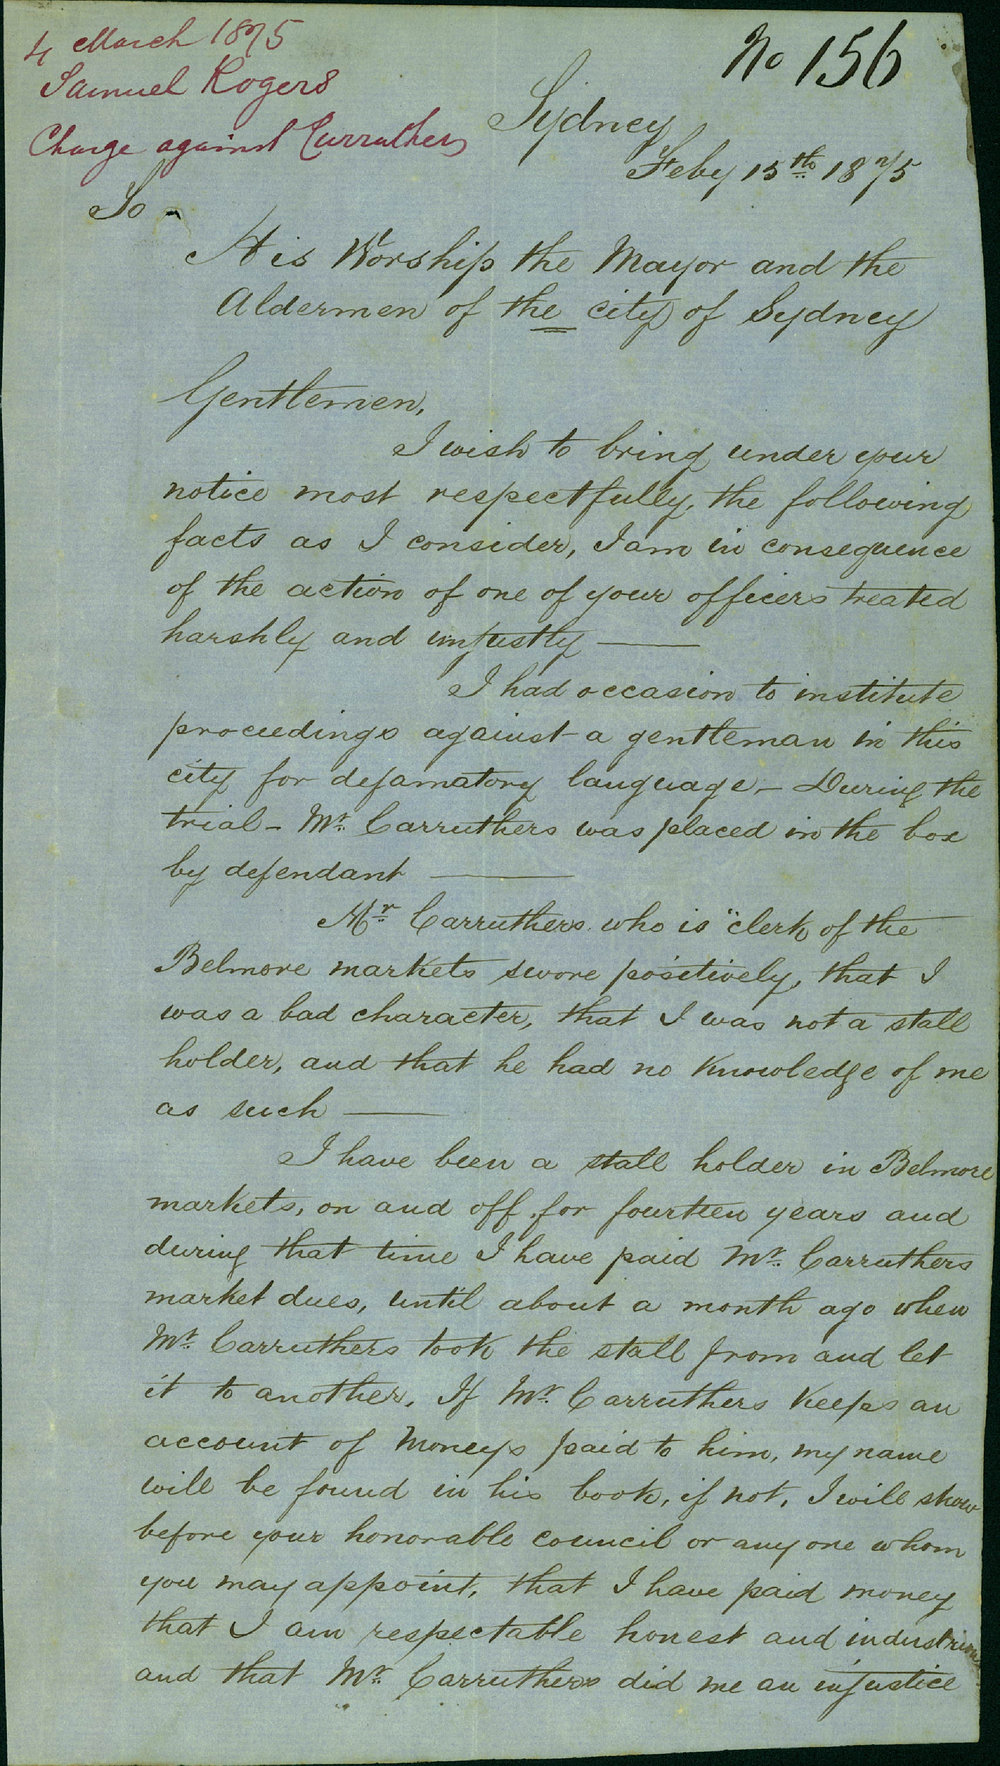 4 March 1875
Samuel Rogers
Charge against Curruthers
No 156
Sydney
Feby 15th 1875
To -
His Worship the Mayor and the
Aldermen of the city of Sydney
Gentlemen,
I wish to bring under your
notice most respectfully, the following
facts as I consider, I am in consequence
of the action of one of your officers treated
harshly and unjustly —
I had occasion to institute
proceedings against a gentleman in this
city for defamatory language, - During the
trial - Mr. Carruthers was placed in the box
by defendant —
Mr Carruthers who is "clerk of the
Belmore markets swore positively, that I
was a bad character, that I was not a stall
holder, and that he had no knowledge of me
as such —
I have been a stall holder in Belmore
markets, on and off, for fourteen years and
during that time I have paid Mr. Carruthers
market dues, until about a month ago when
Mr. Carruthers took the stall from and let
it to another. If Mr. Carruthers Keeps an
account of Moneys paid to him, my name
will be found in his book, if not, I will show
before your honorable council or any one whom
you may appoint, that I have paid money
that I am respectable honest and industrious
and that Mr. Carruthers did me an injustice